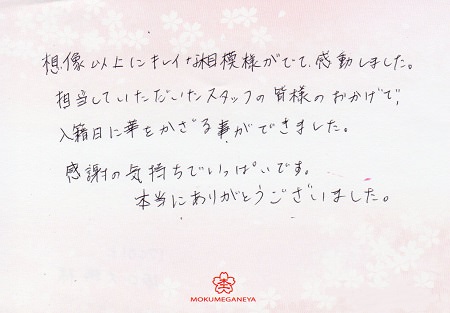 想像以上にキレイな相模様がでて、感動しました。
担当していただいたスタッフの皆様のおかげで、
入籍日に華をかざる事ができました。
感謝の気持ちでいっぱいです。
本当にありがとうございました。
MOKUMEGANEYA